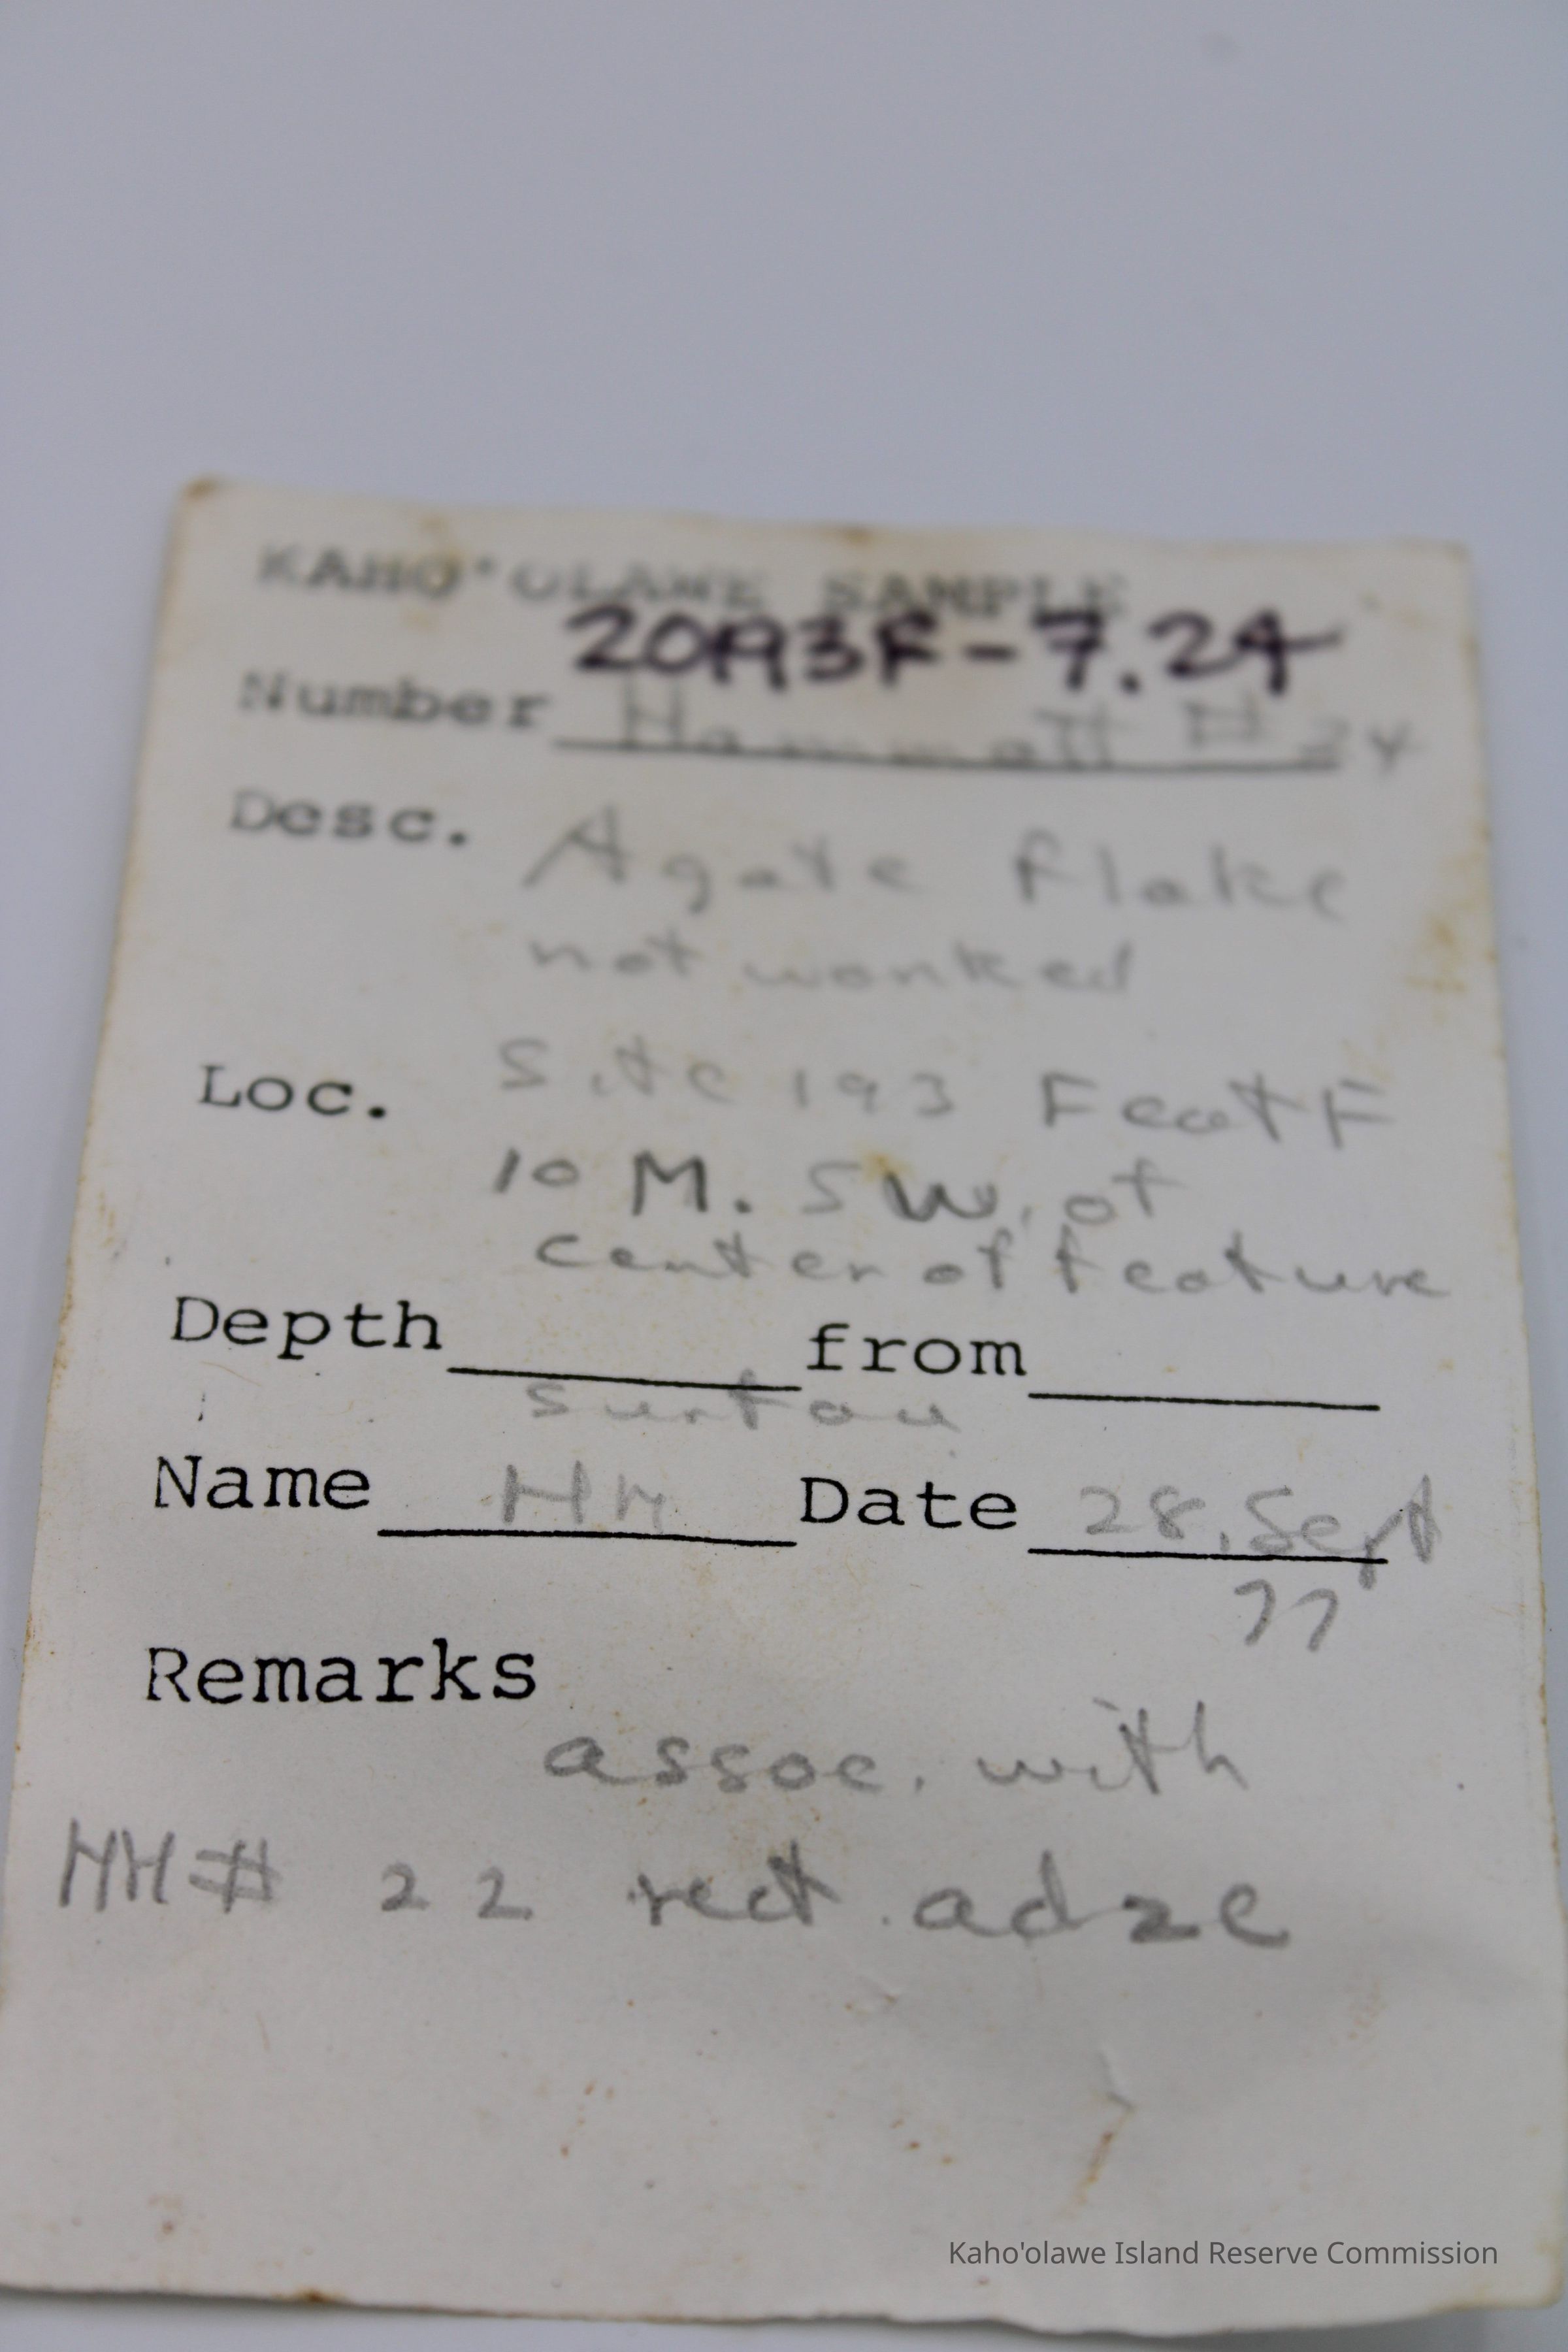 KAHO'OLAWE SAMPLE
20A3F-7.24
Number Hammatt #24
Desc. Agate flake
not worked
Loc. Site 193 Feat F
10 M. SW. of
center of feature
Depth from
surface
Name HH Date 28. Sept
77
Remarks
assoc. with
HH# 22 rect. adze
Kaho'olawe Island Reserve Commission